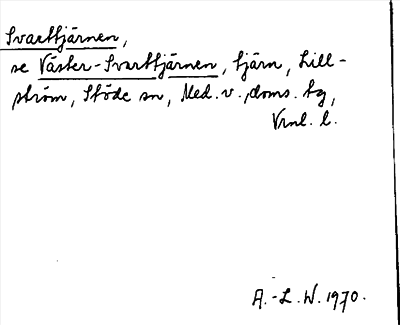 Svarttjärnen,
se Väster-Svarttjärnen, tjärn, Lill-
ström, Stöde sn, Med. v. doms. tg,
Vrnl. l.
A.-L.W. 1970.